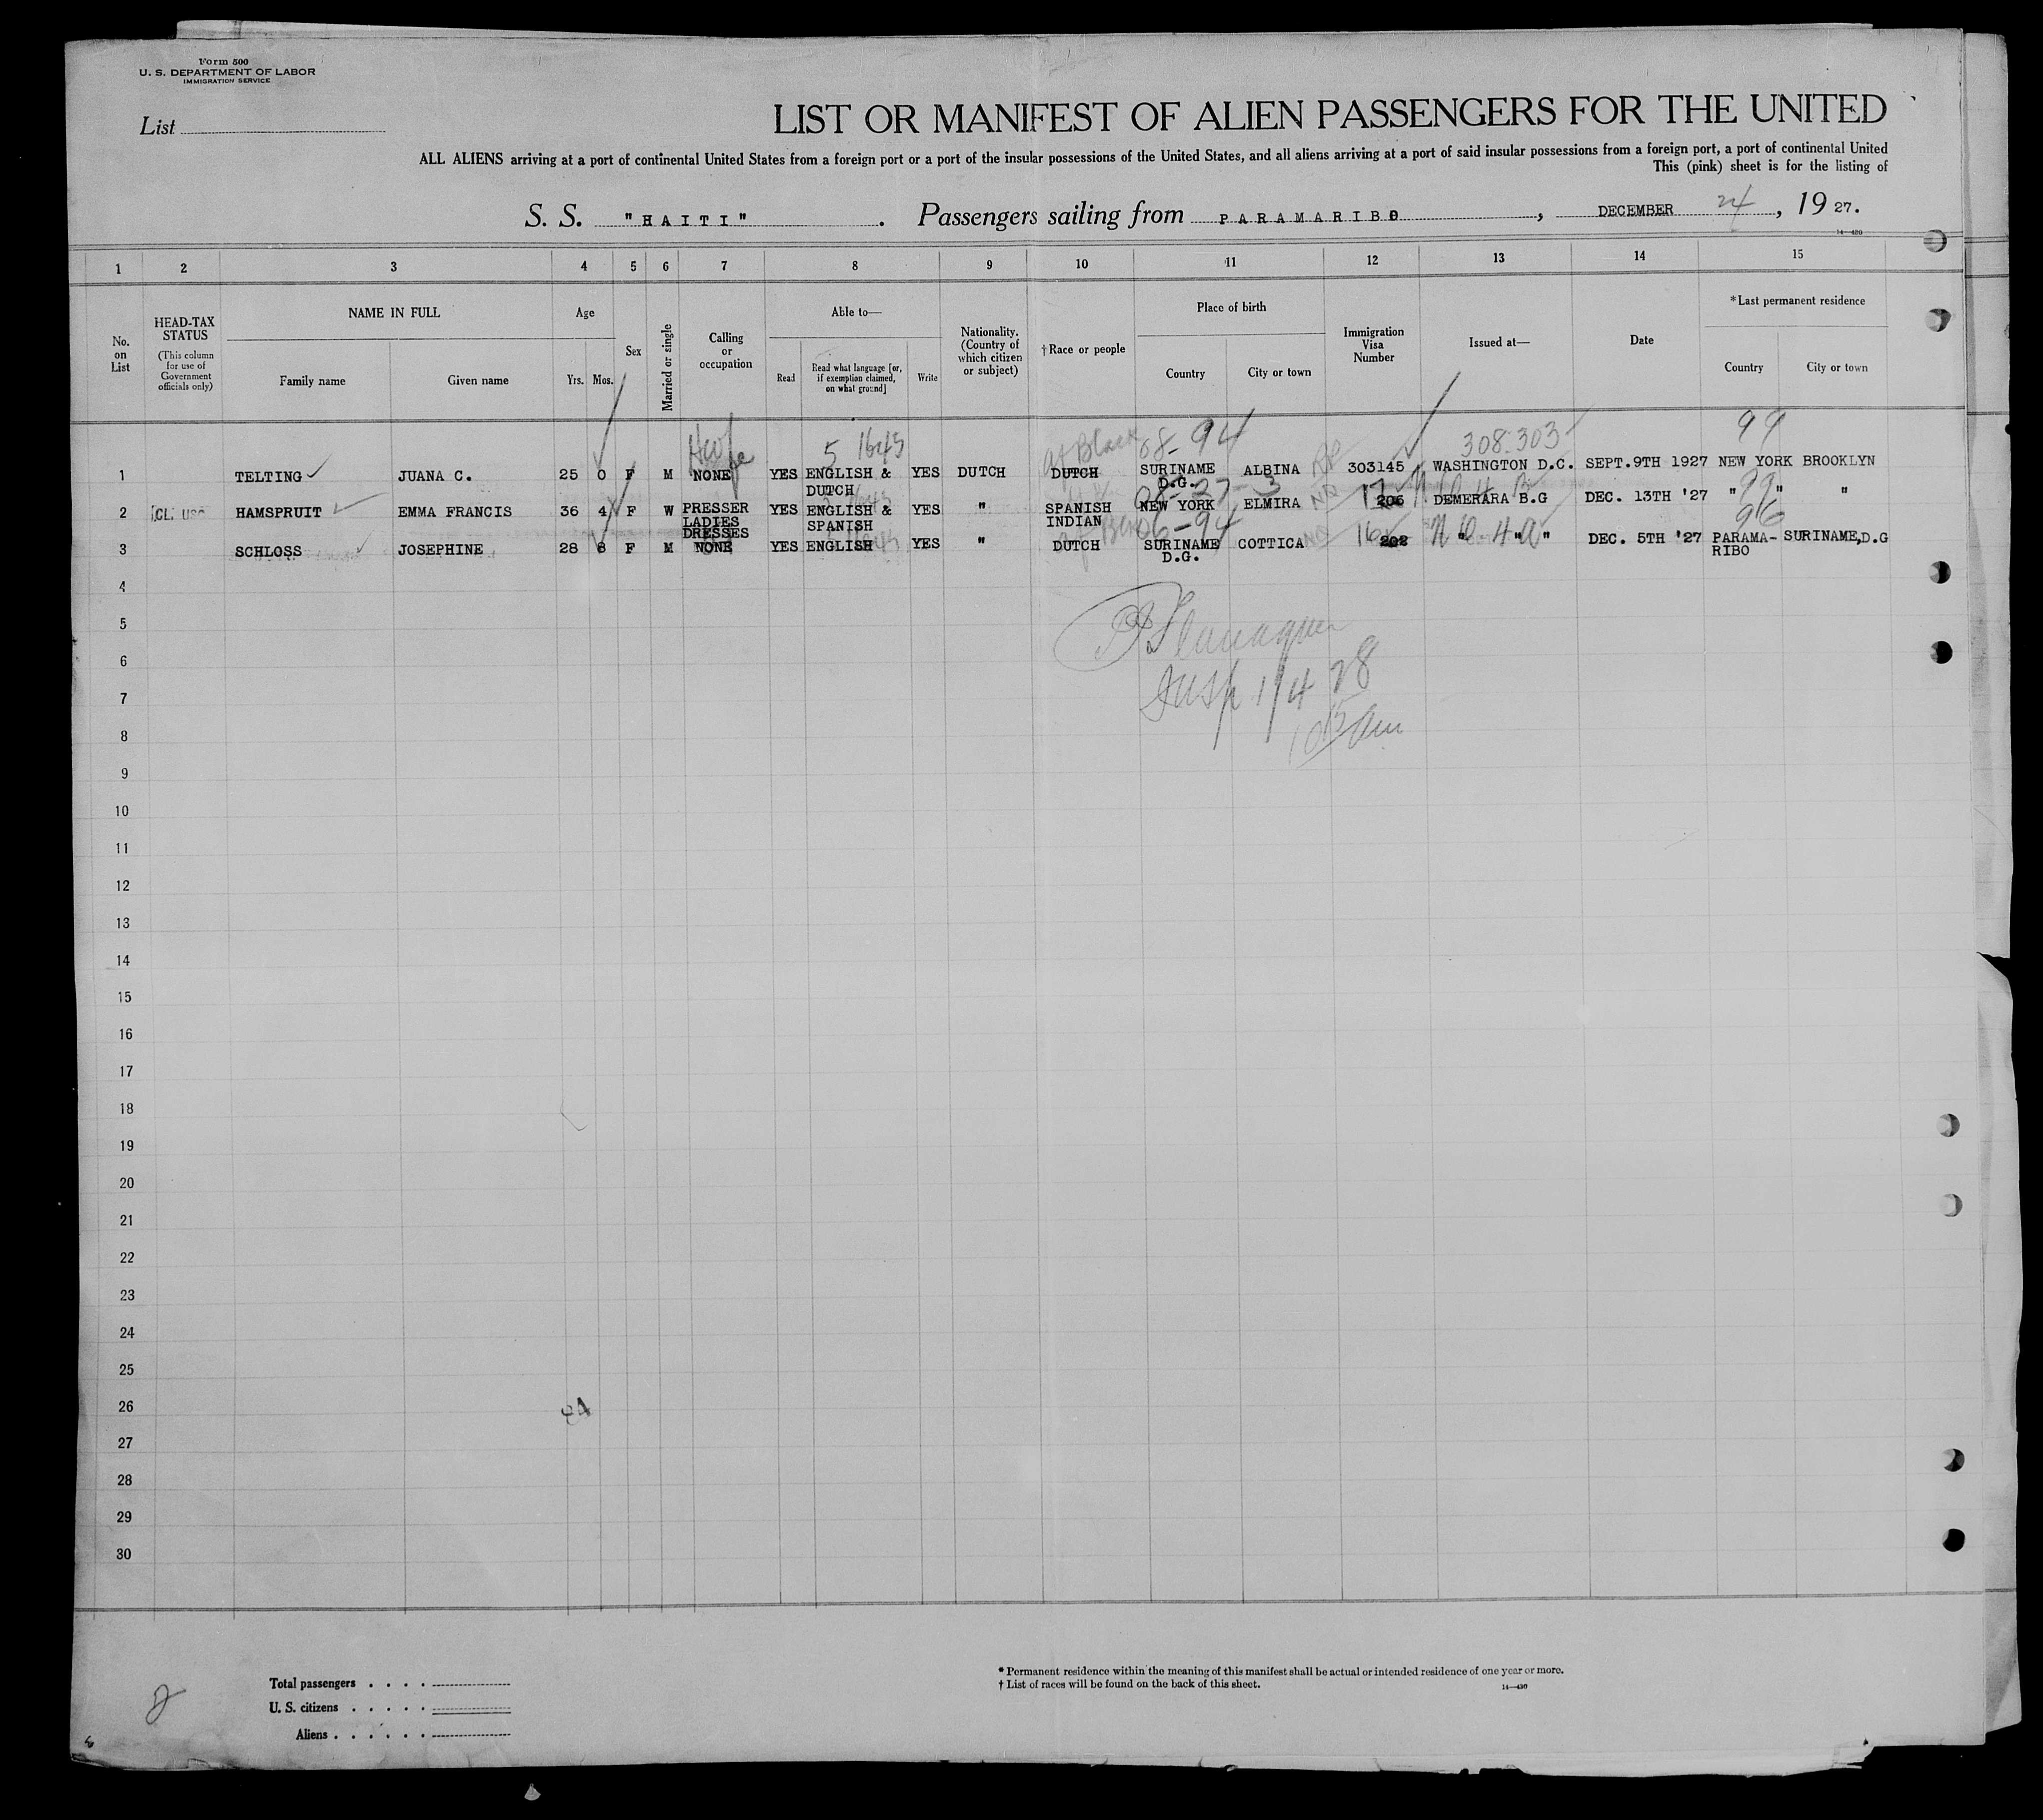 Form 500
U. S. DEPARTMENT OF LABOR
IMMIGRATION SERVICE
List
LIST OR MANIFEST OF ALIEN PASSENGERS FOR THE UNITED
ALL ALIENS arriving at a port of continental United States from a foreign port or a port of the insular possessions of the United States, and all aliens arriving at a port of said insular possessions from a foreign port, a port of continental United
This (pink) sheet is for the listing of
S. S. "HAITI". Passengers sailing from PARAMARIBO, DECEMBER 24, 1927.
14—480
1 2 3 4 5 6 7 8 9 10 11 12 13 14 15
No. on List
HEAD-TAX STATUS (This column for use of Government officials only)
NAME IN FULL
Family name Given name
Age
Yrs. Mos.
Sex
Married or single
Calling or occupation
Able to—
Read
Read what language [or, if exemption claimed, on what ground]
Write
Nationality. (Country of which citizen or subject)
†Race or people
Place of birth
Country City or town
Immigration Visa Number
Issued at—
Date
*Last permanent residence
Country City or town
5 1645 af Black 08-94 308.303 99
1 TELTING JUANA C. 25 0 F M NONE YES ENGLISH & DUTCH YES DUTCH DUTCH SURINAME D.G. ALBINA 303145 WASHINGTON D.C. SEPT.9TH 1927 NEW YORK BROOKLYN
08-27-3 99
2 HAMSPRUIT EMMA FRANCIS 36 4 F W PRESSER LADIES DRESSES YES ENGLISH & SPANISH YES " SPANISH INDIAN NEW YORK ELMIRA 206 DEMERARA B.G DEC. 13TH '27 " " "
06-94 96
3 SCHLOSS JOSEPHINE 28 8 F M NONE YES ENGLISH YES " DUTCH SURINAME D.G. COTTICA 202 " " " DEC. 5TH '27 PARAMARIBO SURINAME,D.G
4
5
Flanagan
6
7
Insp 1/4 28
8
10 15 am
9
10
11
12
13
14
15
16
17
18
19
20
21
22
23
24
25
26
27
28
29
30
Total passengers
U. S. citizens
Aliens
* Permanent residence within the meaning of this manifest shall be actual or intended residence of one year or more.
† List of races will be found on the back of this sheet.
14—480